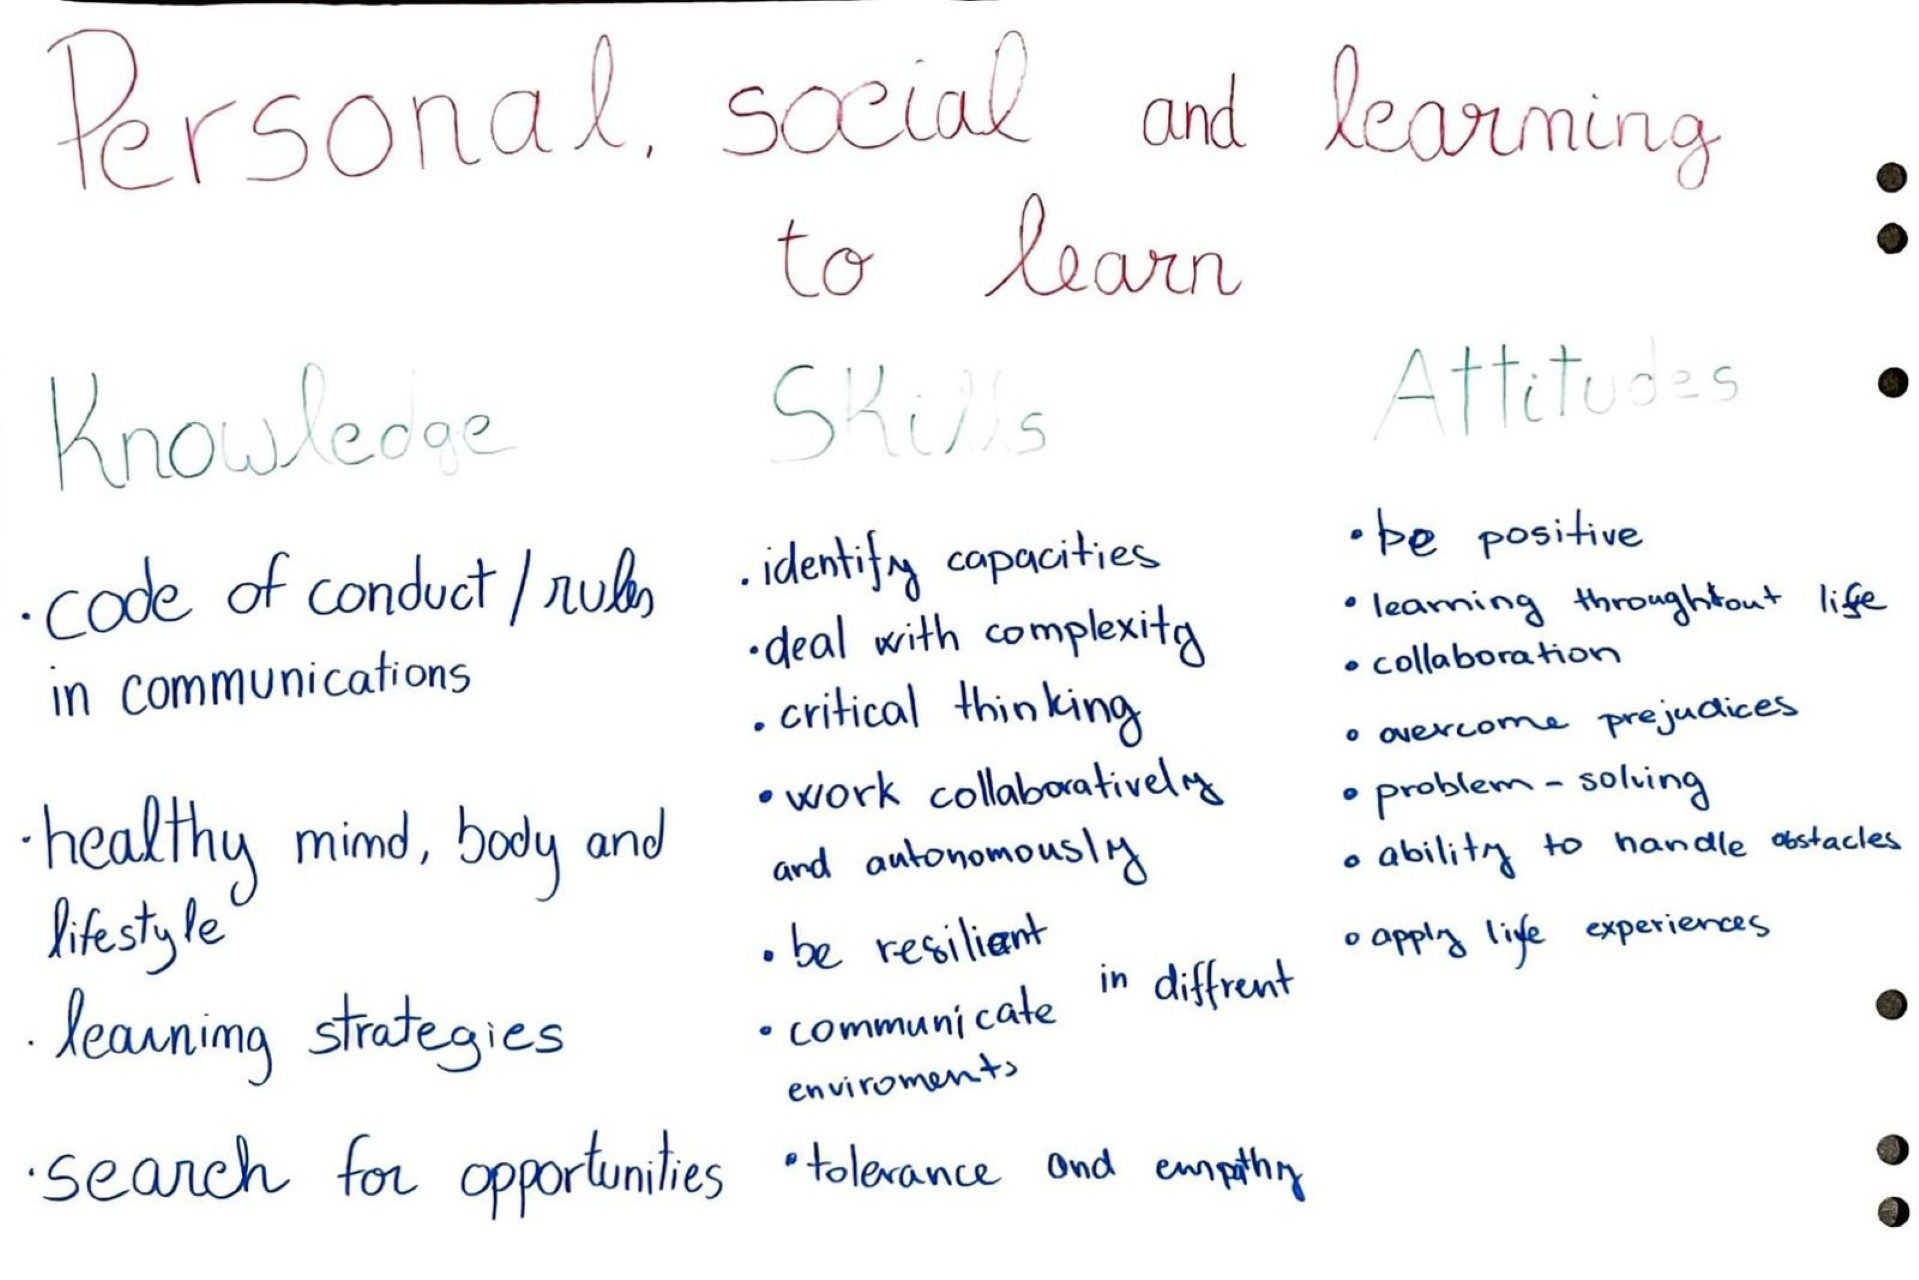 Personal, social and learning
to learn
Knowledge
· code of conduct / rules
in communications
· healthy mind, body and
lifestyle
· learning strategies
· search for opportunities
Skills
· identify capacities
· deal with complexity
· critical thinking
· work collaboratively
and autonomously
· be resiliant
· communicate in diffrent
enviroments
· tolerance and empathy
Attitudes
· be positive
· learning throughtout life
· collaboration
· overcome prejudices
· problem - solving
· ability to handle obstacles
· apply life experiences